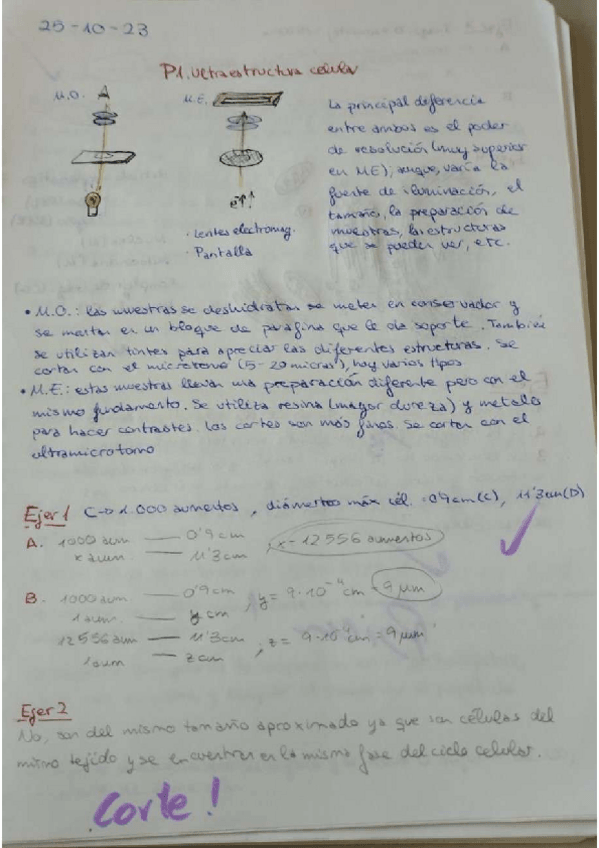 25-10-23
P1. Ultraestructura celular
M.O.
M.E.
e⁻↑↑
· Lentes electromag.
· Pantalla
La principal diferencia
entre ambos es el poder
de resolución (muy superior
en ME), aunque, varía la
fuente de iluminación, el
tamaño, la preparación de
muestras, las estructuras
que se pueden ver, etc.
• M.O.: las muestras se deshidratan se meten en conservador y
se montan en un bloque de parafina que le da soporte. También
se utilizan tintes para apreciar las diferentes estructuras. Se
cortan con el microtomo (5-20 micras), hay varios tipos
• M.E.: estas muestras llevan una preparación diferente pero con el
mismo fundamento. Se utiliza resina (mayor dureza) y metales
para hacer contrastes. Los cortes son más finos. Se cortan con el
ultramicrotomo
Ejer 1 C→ 1.000 aumentos, diámetro máx cél. 0'9cm (C), 11'3cm (D)
A. 1000 aum — 0'9 cm
x aum — 11'3 cm , x = 12 556 aumentos
B. 1000 aum — 0'9 cm
1 aum — y cm , y = 9·10⁻⁴ cm = 9 μm
12 556 aum — 11'3 cm
1 aum — z cm ; z = 9·10⁻⁴ cm = 9 μm
Ejer 2
No, son del mismo tamaño aproximado ya que son células del
mismo tejido y se encuentran en la misma fase del ciclo celular.
Corte!